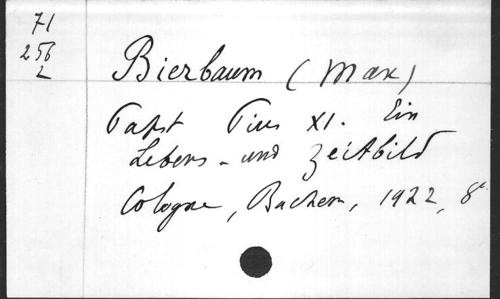 71
256
2
Bierbaum (Max)
Papst Pius XI. Ein
Lebens-und Zeitbild
Cologne, Bachem, 1922, 8º